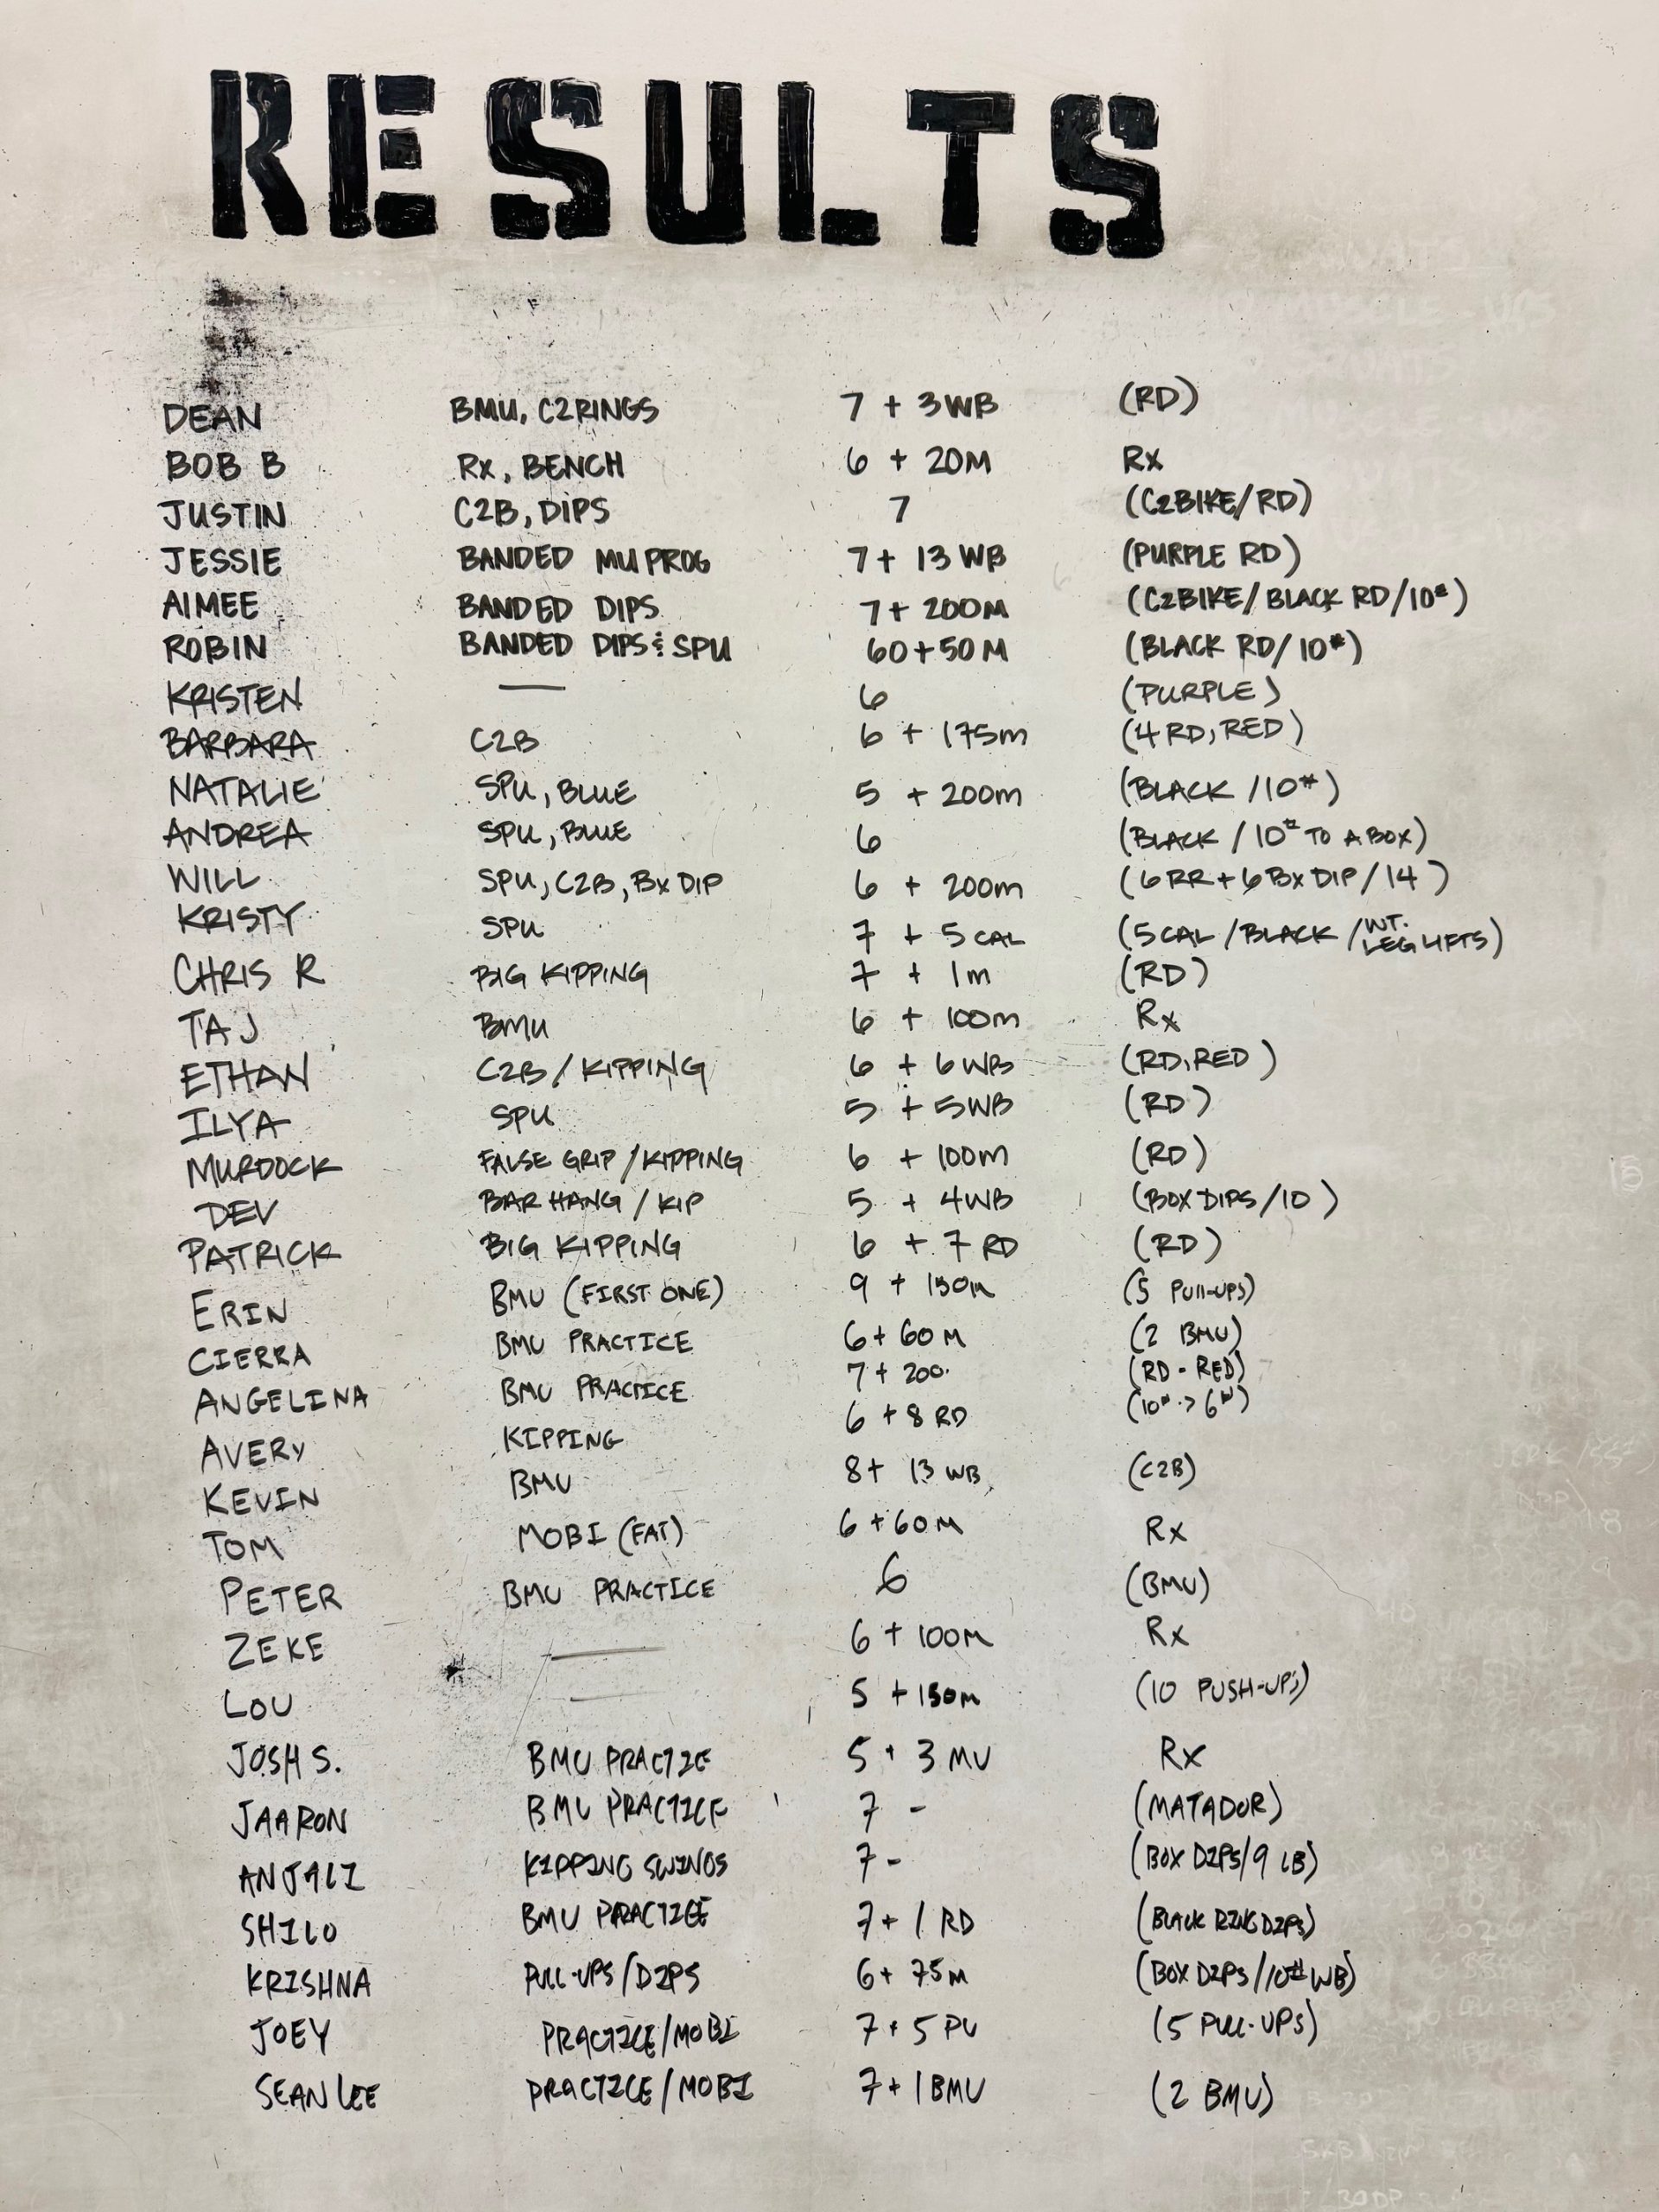 RESULTS
DEAN BMU, C2RINGS 7 + 3WB (RD)
BOB B Rx, BENCH 6 + 20M Rx
JUSTIN C2B, DIPS 7 (C2BIKE/RD)
JESSIE BANDED MU PROG 7+ 13 WB (PURPLE RD)
AIMEE BANDED DIPS 7+ 200M (C2BIKE/BLACK RD/10#)
ROBIN BANDED DIPS & SPU 60+50M (BLACK RD/10#)
KRISTEN — 6 (PURPLE)
BARBARA C2B 6 + 175m (4 RD, RED)
NATALIE SPU, BLUE 5 + 200m (BLACK /10#)
ANDREA SPU, BLUE 6 (BLACK / 10# TO A BOX)
WILL SPU, C2B, Bx DIP 6 + 200m (6RR+6BxDIP/14)
KRISTY SPU 7 + 5 CAL (5CAL/BLACK/WT. LEG LIFTS)
CHRIS R BIG KIPPING 7 + 1m (RD)
TAJ BMU 6 + 100m Rx
ETHAN C2B/KIPPING 6 + 6WB (RD, RED)
ILYA SPU 5 + 5WB (RD)
MURDOCK FALSE GRIP/KIPPING 6 + 100m (RD)
DEV BAR HANG / KIP 5 + 4WB (BOX DIPS/10)
PATRICK BIG KIPPING 6 + 7 RD (RD)
ERIN BMU (FIRST ONE) 9 + 150m (5 PUll-UPS)
CIERRA BMU PRACTICE 6+ 60 M (2 BMU)
ANGELINA BMU PRACTICE 7+ 200 (RD - RED)
AVERY KIPPING 6 + 8 RD (10# -> 6#)
KEVIN BMU 8+ 13 WB (C2B)
TOM MOBI (FAT) 6 +60M Rx
PETER BMU PRACTICE 6 (BMU)
ZEKE — 6 + 100M Rx
LOU — 5 + 150m (10 PUSH-UPS)
JOSH S. BMU PRACTICE 5 + 3 MU Rx
JAARON BMU PRACTICE 7 - (MATADOR)
ANJALI KIPPING SWINGS 7 - (BOX DIPS/9 LB)
SHILO BMU PRACTICE 7+ 1 RD (BLACK RING DIPS)
KRISHNA PULL-UPS/DIPS 6+ 75M (BOX DIPS/10# WB)
JOEY PRACTICE/MOBI 7+ 5 PU (5 PULL-UPS)
SEAN LEE PRACTICE/MOBI 7+ 1 BMU (2 BMU)